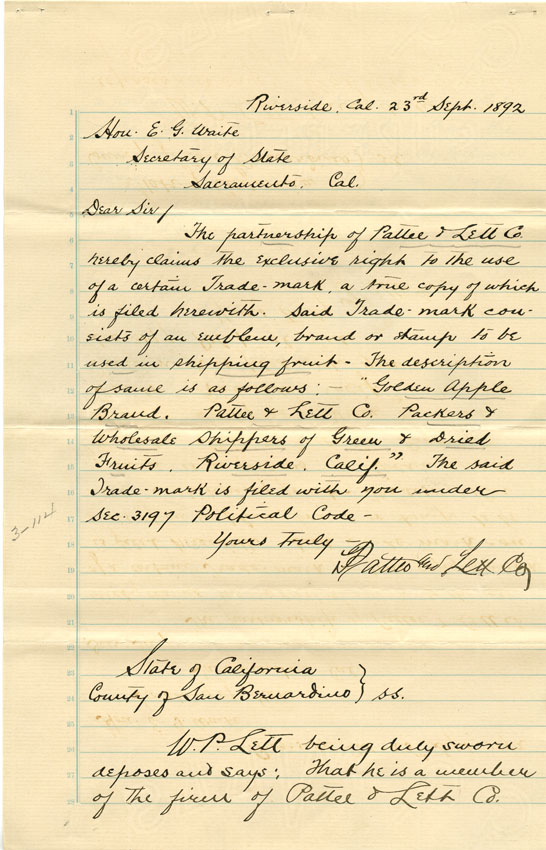 Riverside, Cal. 23rd Sept. 1892
1
Hon. E. G. Waite
2
Secretary of State
3
Sacramento, Cal.
4
Dear Sir/
5
The partnership of Pattee & Lett Co.
6
hereby claims the exclusive right to the use
7
of a certain Trade-mark, a true copy of which
8
is filed herewith. Said Trade-mark con-
9
sists of an emblem, brand or stamp to be
10
used in shipping fruit - The description
11
of same is as follows: - "Golden Apple
12
Brand. Pattee & Lett Co. Packers &
13
Wholesale Shippers of Green & Dried
14
Fruits, Riverside, Calif." The said
15
Trade-mark is filed with you under
16
Sec. 3197 Political Code -
17
3-114
Yours Truly
18
Pattee and Lett Co,
19
20
21
22
State of California
23
County of San Bernardino } ss.
24
25
W. P. Lett being duly sworn
26
deposes and says; That he is a member
27
of the firm of Pattee & Lett Co.
28